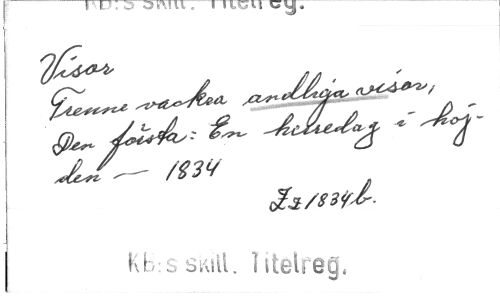 Kb:s skill. Titelreg.
Visor
Trenne vackra andliga visor,
Den första: En herredag i höj-
den — 1834
Zz1834b.
Kb:s skill. Titelreg.